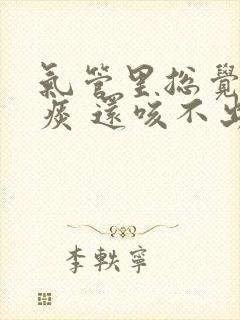 氣管里總覺
痰還咳不出
李軼寧